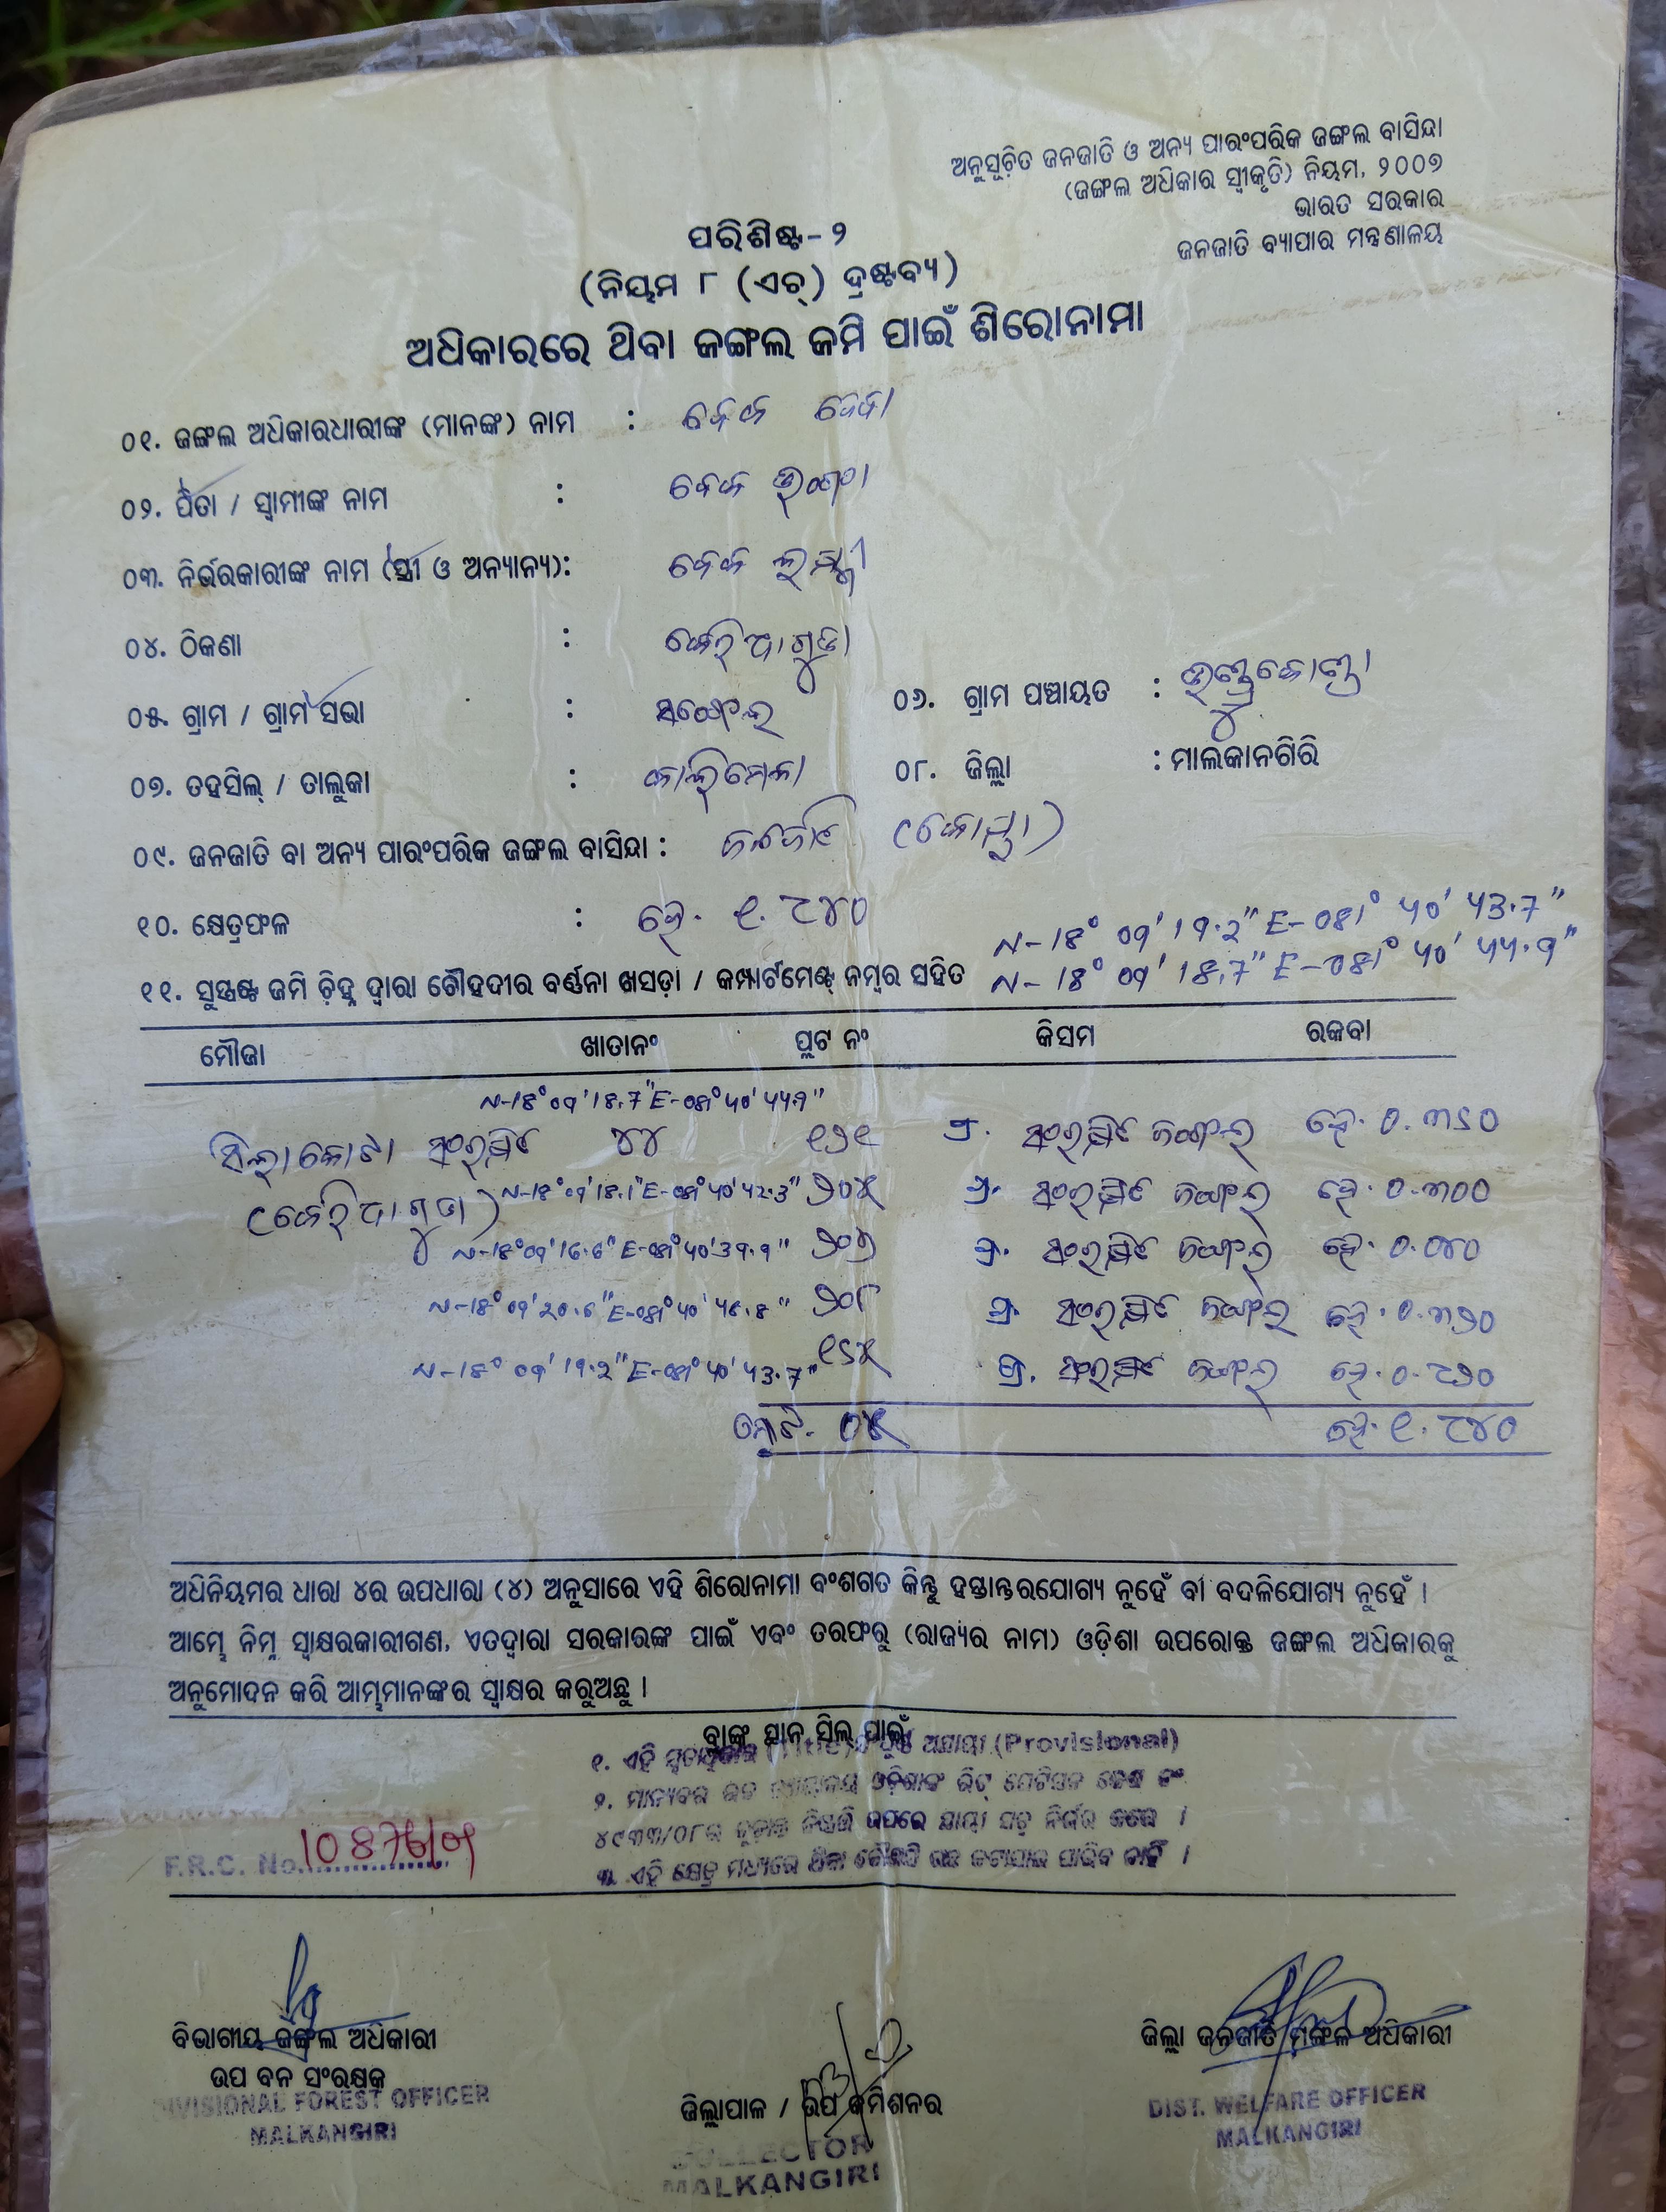 ଅନୁସୂଚିତ ଜନଜାତି ଓ ଅନ୍ୟ ପାରଂପରିକ ଜଙ୍ଗଲ ବାସିନ୍ଦା
(ଜଙ୍ଗଲ ଅଧିକାର ସ୍ୱୀକୃତି) ନିୟମ, ୨୦୦୭
ଭାରତ ସରକାର
ଜନଜାତି ବ୍ୟାପାର ମନ୍ତ୍ରଣାଳୟ
ପରିଶିଷ୍ଟ-୨
(ନିୟମ ୮ (ଏଚ୍) ଦ୍ରଷ୍ଟବ୍ୟ)
ଅଧିକାରରେ ଥିବା ଜଙ୍ଗଲ ଜମି ପାଇଁ ଶିରୋନାମା
୦୧. ଜଙ୍ଗଲ ଅଧିକାରଧାରୀଙ୍କ (ମାନଙ୍କ) ନାମ :
୦୨. ପିତା / ସ୍ୱାମୀଙ୍କ ନାମ :
୦୩. ନିର୍ଭରକାରୀଙ୍କ ନାମ (ସ୍ତ୍ରୀ ଓ ଅନ୍ୟାନ୍ୟ):
୦୪. ଠିକଣା : କେରିଆଗୁଡା
୦୫. ଗ୍ରାମ / ଗ୍ରାମ ସଭା :
୦୬. ଗ୍ରାମ ପଞ୍ଚାୟତ :
୦୭. ତହସିଲ୍ / ତାଲୁକା : କାଲିମେଳା
୦୮. ଜିଲ୍ଲା : ମାଲକାନଗିରି
୦୯. ଜନଜାତି ବା ଅନ୍ୟ ପାରଂପରିକ ଜଙ୍ଗଲ ବାସିନ୍ଦା : (କୋୟା)
୧୦. କ୍ଷେତ୍ରଫଳ : ହେ. ୧.୮୪୦
N-18° 09' 19.2" E-081° 40' 43.7"
୧୧. ସୁସ୍ପଷ୍ଟ ଜମି ଚିହ୍ନ ଦ୍ୱାରା ଚୌହଦୀର ବର୍ଣ୍ଣନା ଖସଡ଼ା / କମ୍ପାର୍ଟମେଣ୍ଟ୍ ନମ୍ବର ସହିତ N-18° 09' 18.7" E-081° 40' 44.9"
ମୌଜା ଖାତାନଂ ପ୍ଲଟ ନଂ କିସମ ରକବା
N-18° 09' 18.7" E-081° 40' 44.9"
ସଂରକ୍ଷିତ ୪୪ ୧୨୧ ପ୍ର. ସଂରକ୍ଷିତ ଜଙ୍ଗଲ ହେ. ୦.୩୬୦
(କେରିଆଗୁଡା) N-18° 09' 18.1" E-081° 40' 42.3" ୨୦୪ ପ୍ର. ସଂରକ୍ଷିତ ଜଙ୍ଗଲ ହେ. ୦.୩୦୦
N-18° 09' 16.6" E-081° 40' 39.9" ପ୍ର. ସଂରକ୍ଷିତ ଜଙ୍ଗଲ ହେ. ୦.୦୪୦
N-18° 09' 20.6" E-081° 40' 46.8" ୨୦୮ ପ୍ର. ସଂରକ୍ଷିତ ଜଙ୍ଗଲ ହେ. ୦.୩୨୦
N-18° 09' 19.2" E-081° 40' 43.7" ପ୍ର. ସଂରକ୍ଷିତ ଜଙ୍ଗଲ ହେ. ୦.୮୨୦
ହେ. ୧.୮୪୦
ଅଧିନିୟମର ଧାରା ୪ର ଉପଧାରା (୪) ଅନୁସାରେ ଏହି ଶିରୋନାମା ବଂଶଗତ କିନ୍ତୁ ହସ୍ତାନ୍ତରଯୋଗ୍ୟ ନୁହେଁ ବା ବଦଳିଯୋଗ୍ୟ ନୁହେଁ ।
ଆମ୍ଭେ ନିମ୍ନ ସ୍ୱାକ୍ଷରକାରୀଗଣ, ଏତଦ୍ୱାରା ସରକାରଙ୍କ ପାଇଁ ଏବଂ ତରଫରୁ (ରାଜ୍ୟର ନାମ) ଓଡ଼ିଶା ଉପରୋକ୍ତ ଜଙ୍ଗଲ ଅଧିକାରକୁ
ଅନୁମୋଦନ କରି ଆମ୍ଭମାନଙ୍କର ସ୍ୱାକ୍ଷର କରୁଅଛୁ ।
ସ୍ଥାନ ସିଲ୍ ପାଇଁ
୧. ଏହି (Title) ଅସ୍ଥାୟୀ (Provisional)
୨. ମାନ୍ୟବର ଓଡ଼ିଶାଙ୍କ ରିଟ୍ ପେଟିସନ
୪୯୩୩/୦୮ର ଉପରେ ନିର୍ଭର କରେ ।
୩. ଏହି କ୍ଷେତ୍ର ମଧ୍ୟରେ ଥିବା କୌଣସି ଗଛ କଟାଯାଇ ପାରିବ ନାହିଁ ।
F.R.C. No. 10876/09
ବିଭାଗୀୟ ଜଙ୍ଗଲ ଅଧିକାରୀ
ଉପ ବନ ସଂରକ୍ଷକ
DIVISIONAL FOREST OFFICER
MALKANGIRI
ଜିଲ୍ଲାପାଳ / ଉପ କମିଶନର
COLLECTOR
MALKANGIRI
ଜିଲ୍ଲା ଜନଜାତି ମଙ୍ଗଳ ଅଧିକାରୀ
DIST. WELFARE OFFICER
MALKANGIRI